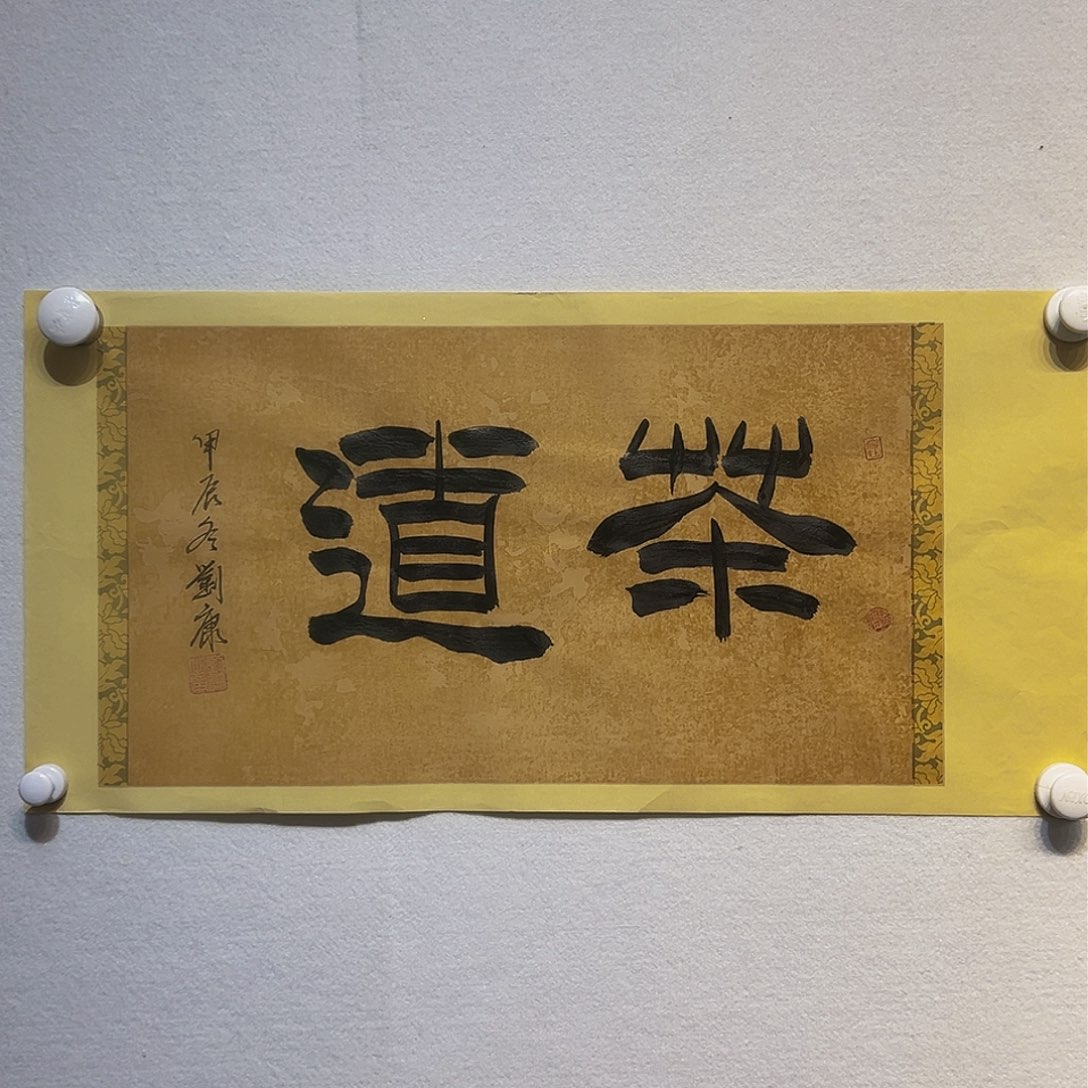 茶道
甲辰冬劉康